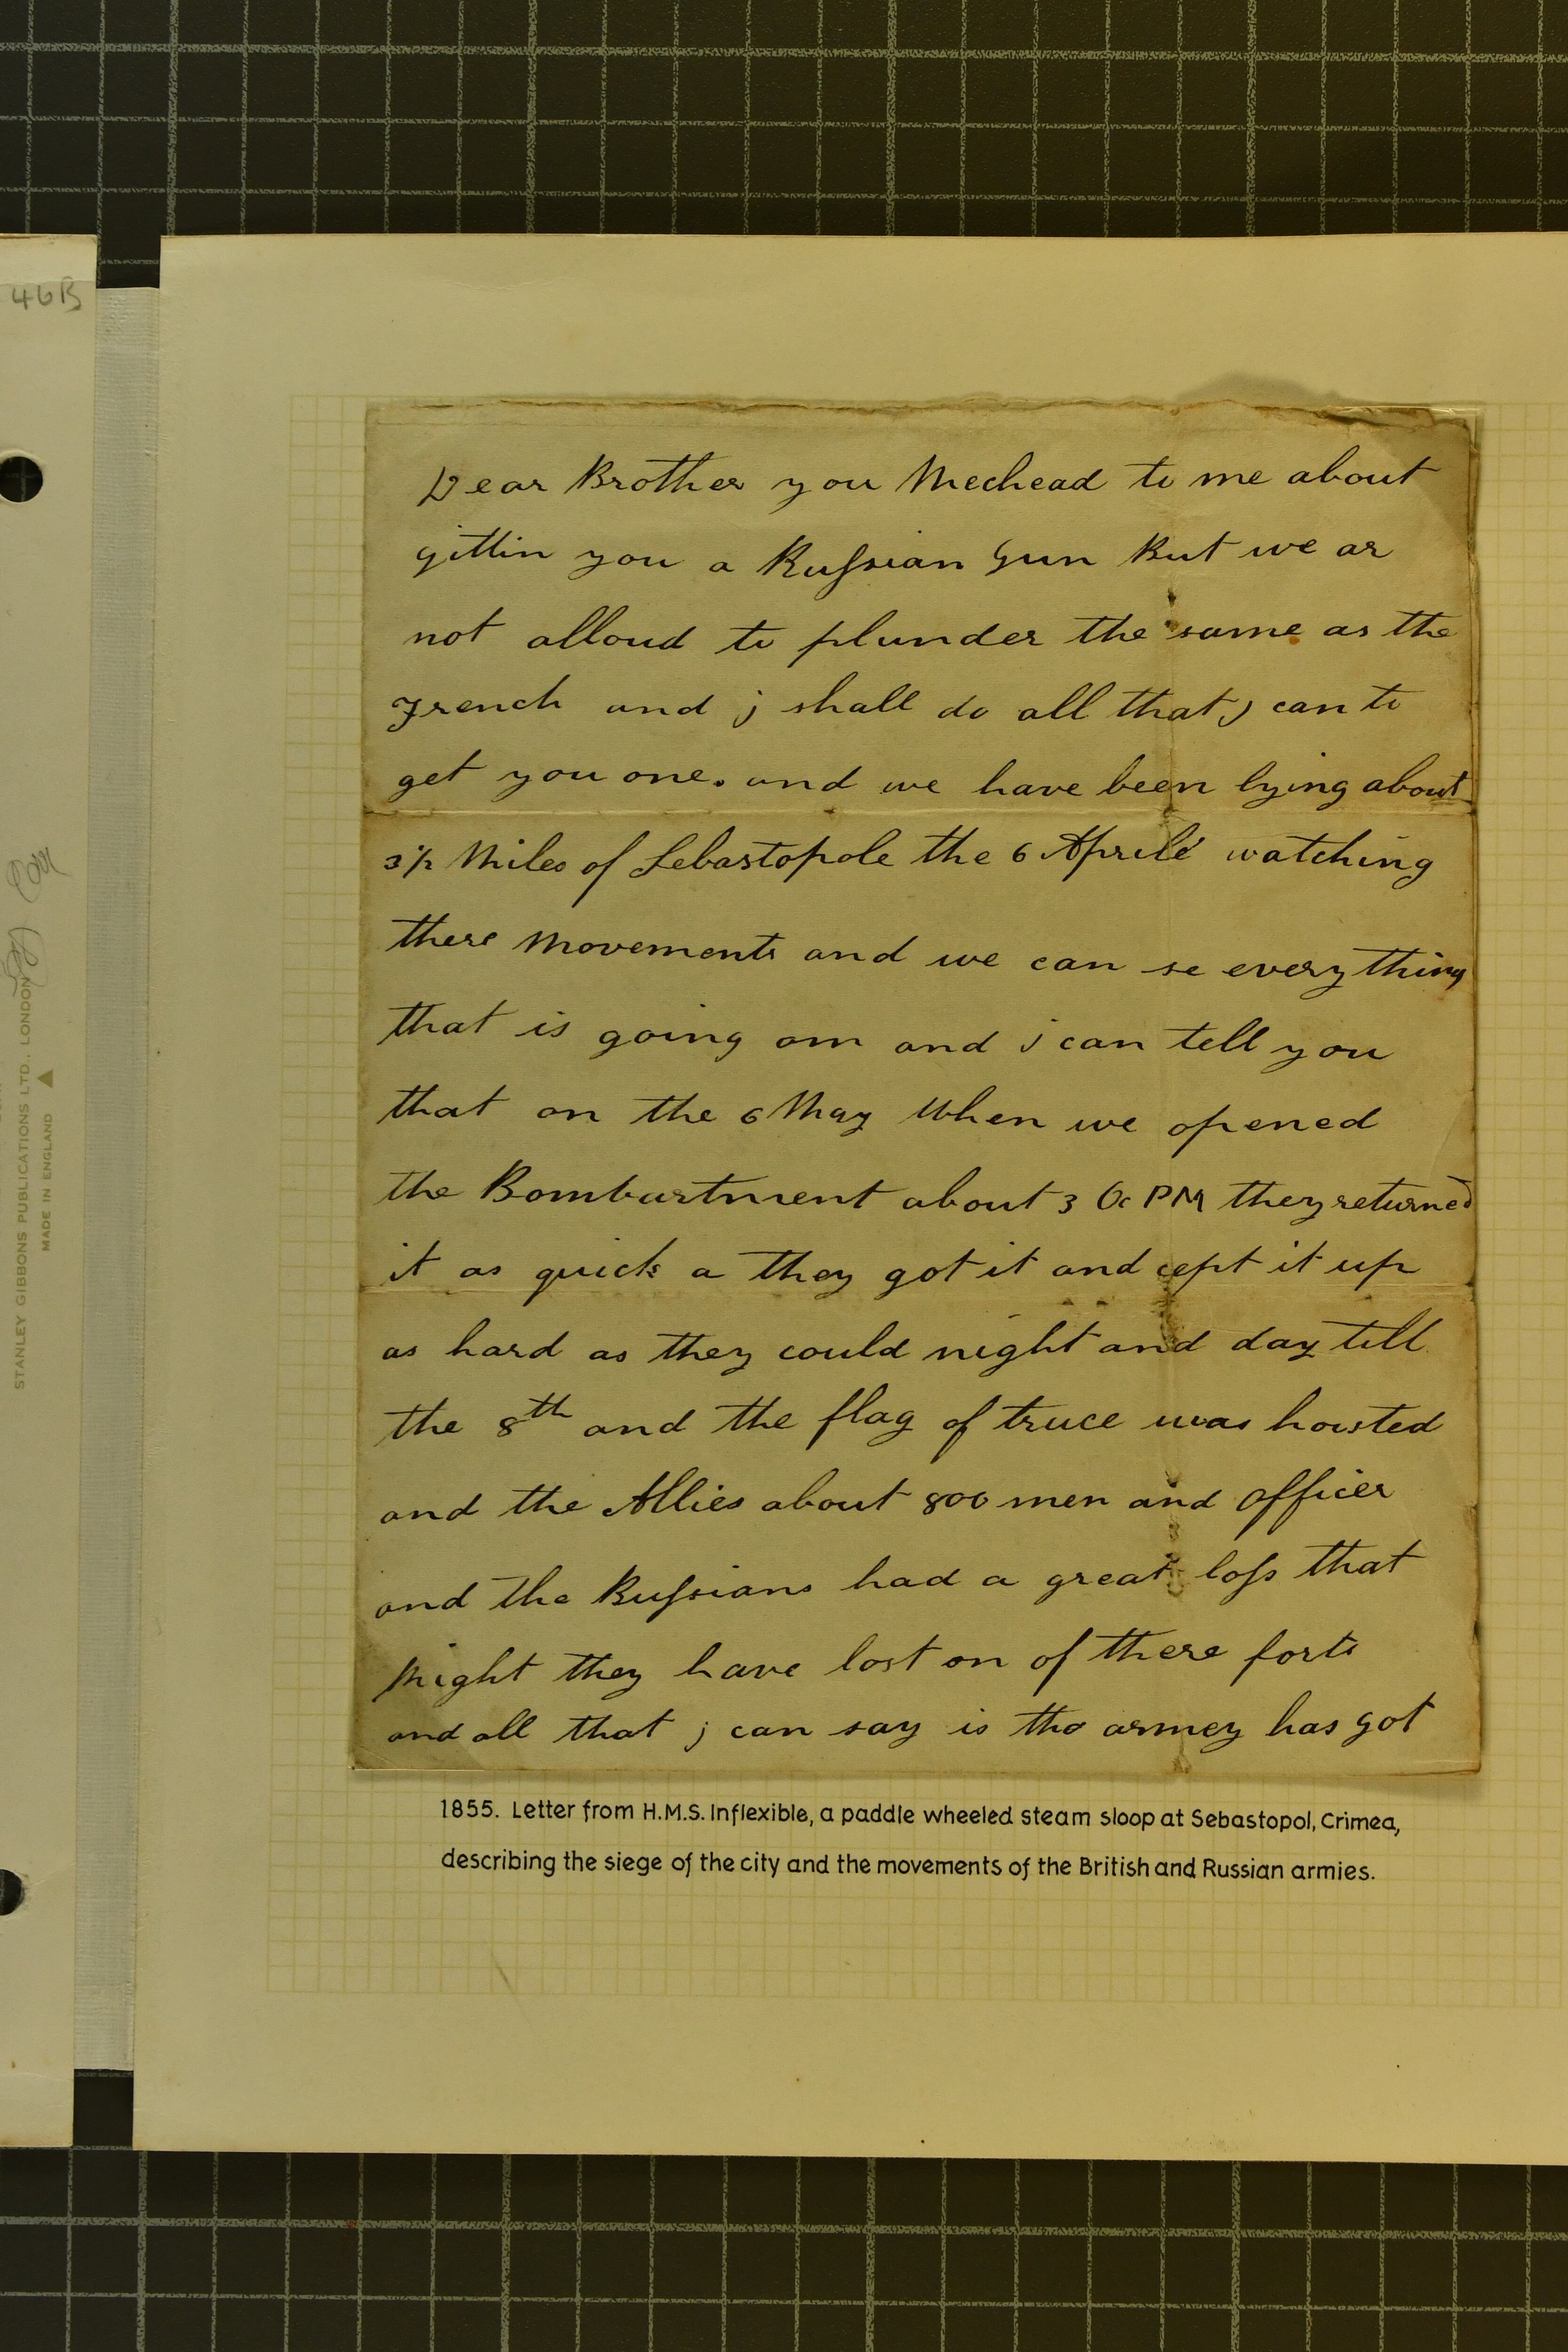 46B
Dear Brother you Mechead to me about
gittin you a Russian Gun But we ar
not alloud to plunder the same as the
French and j shall do all that j can to
get you one. and we have been lying about
3½ Miles of Sebastopole the 6 Aprile watching
there Movements and we can se everything
that is going om and i can tell you
that on the 6 May When we opened
the Bombartment about 3 Oc PM they returned
it as quick a they got it and cept it up
as hard as they could night and day till
the 8th and the flag of truce was hoisted
and the Allies about 800 men and officer
and the Russians had a great loss that
Night they have lost on of there forts
and all that j can say is the armey has got
1855. Letter from H.M.S. Inflexible, a paddle wheeled steam sloop at Sebastopol, Crimea,
describing the siege of the city and the movements of the British and Russian armies.
STANLEY GIBBONS PUBLICATIONS LTD., LONDON
MADE IN ENGLAND